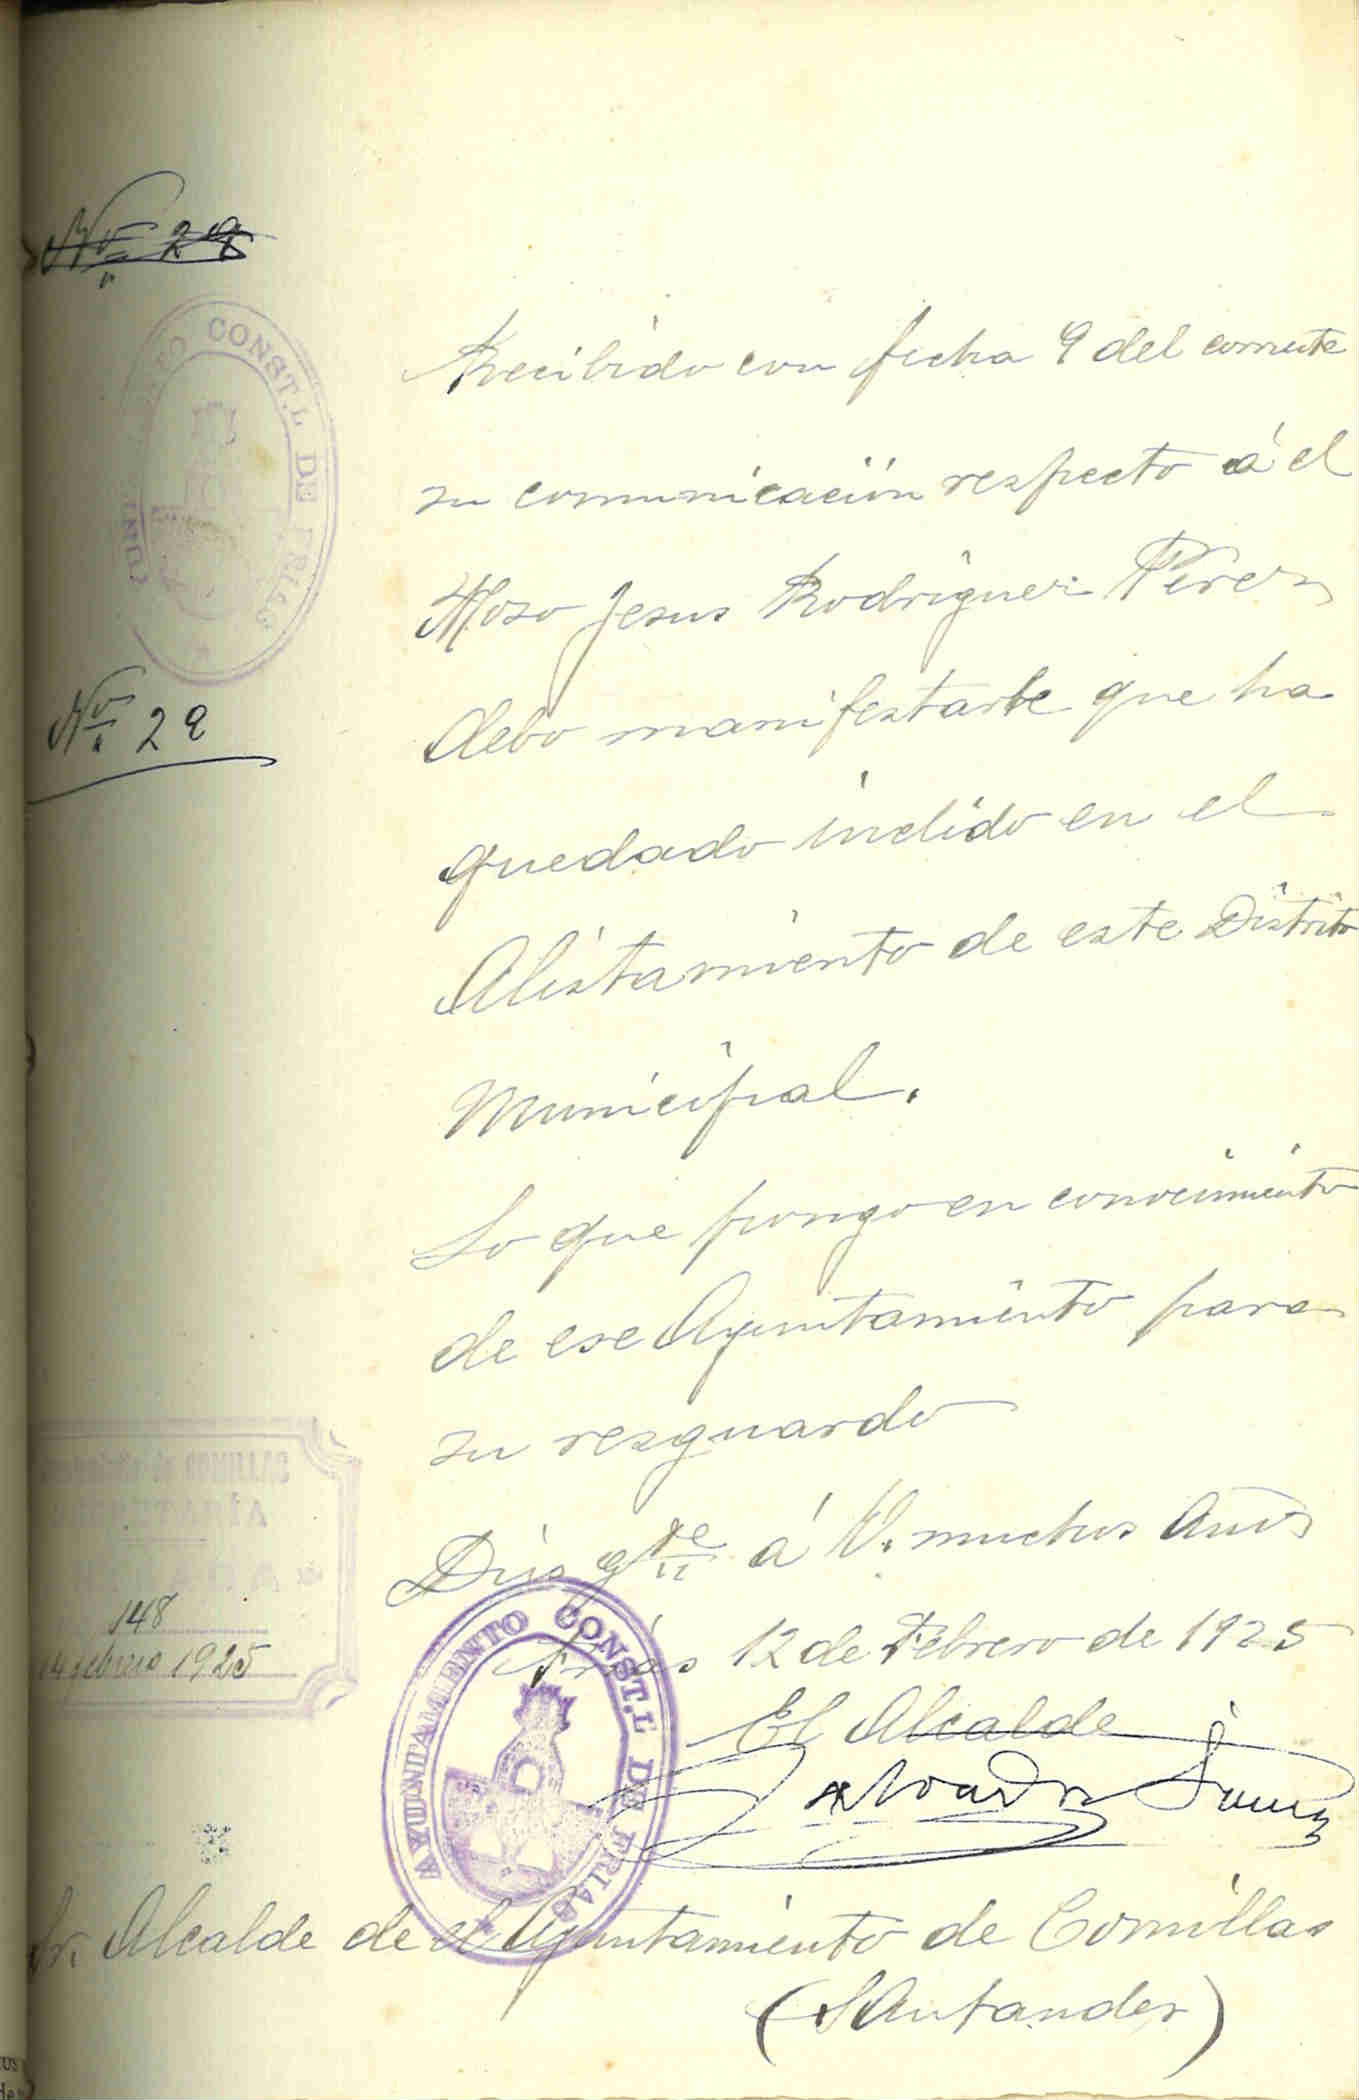 Nº 29
AYUNTAMIENTO CONST.L DE FRIAS
Nº 29
Recibido con fecha 9 del corriente
su comunicación respecto á el
Mozo Jesus Rodriguez Perez
debo manifestarle que ha
quedado inclido en el
Alistamiento de este Distrito
Municipal.
Lo que pongo en conocimiento
de ese Ayuntamiento para
su resguardo
Dios gde á V. muchos años
Frias 12 de Febrero de 1925
El Alcalde
Salvador
AYUNTAMIENTO CONST.L DE FRIAS
COMILLAS
SECRETARÍA
ENTRADA
148
14 febrero 1925
Sr. Alcalde de el Ayuntamiento de Comillas
(Santander)